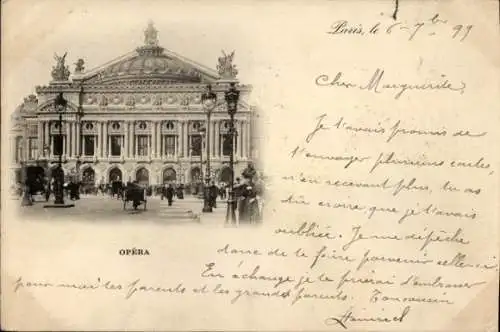 Paris, le 6 - 7bre 99
Cher Marguerite,
Je t'avais promis de
t'envoyer plusieurs cartes,
n'en recevant plus, tu as
dû croire que je t'avais
oubliée. Je me dépêche
donc de te faire parvenir celle-ci
En échange je te prierai d'embrasser
pour moi tes parents et les grands parents. Ton cousin
OPÉRA